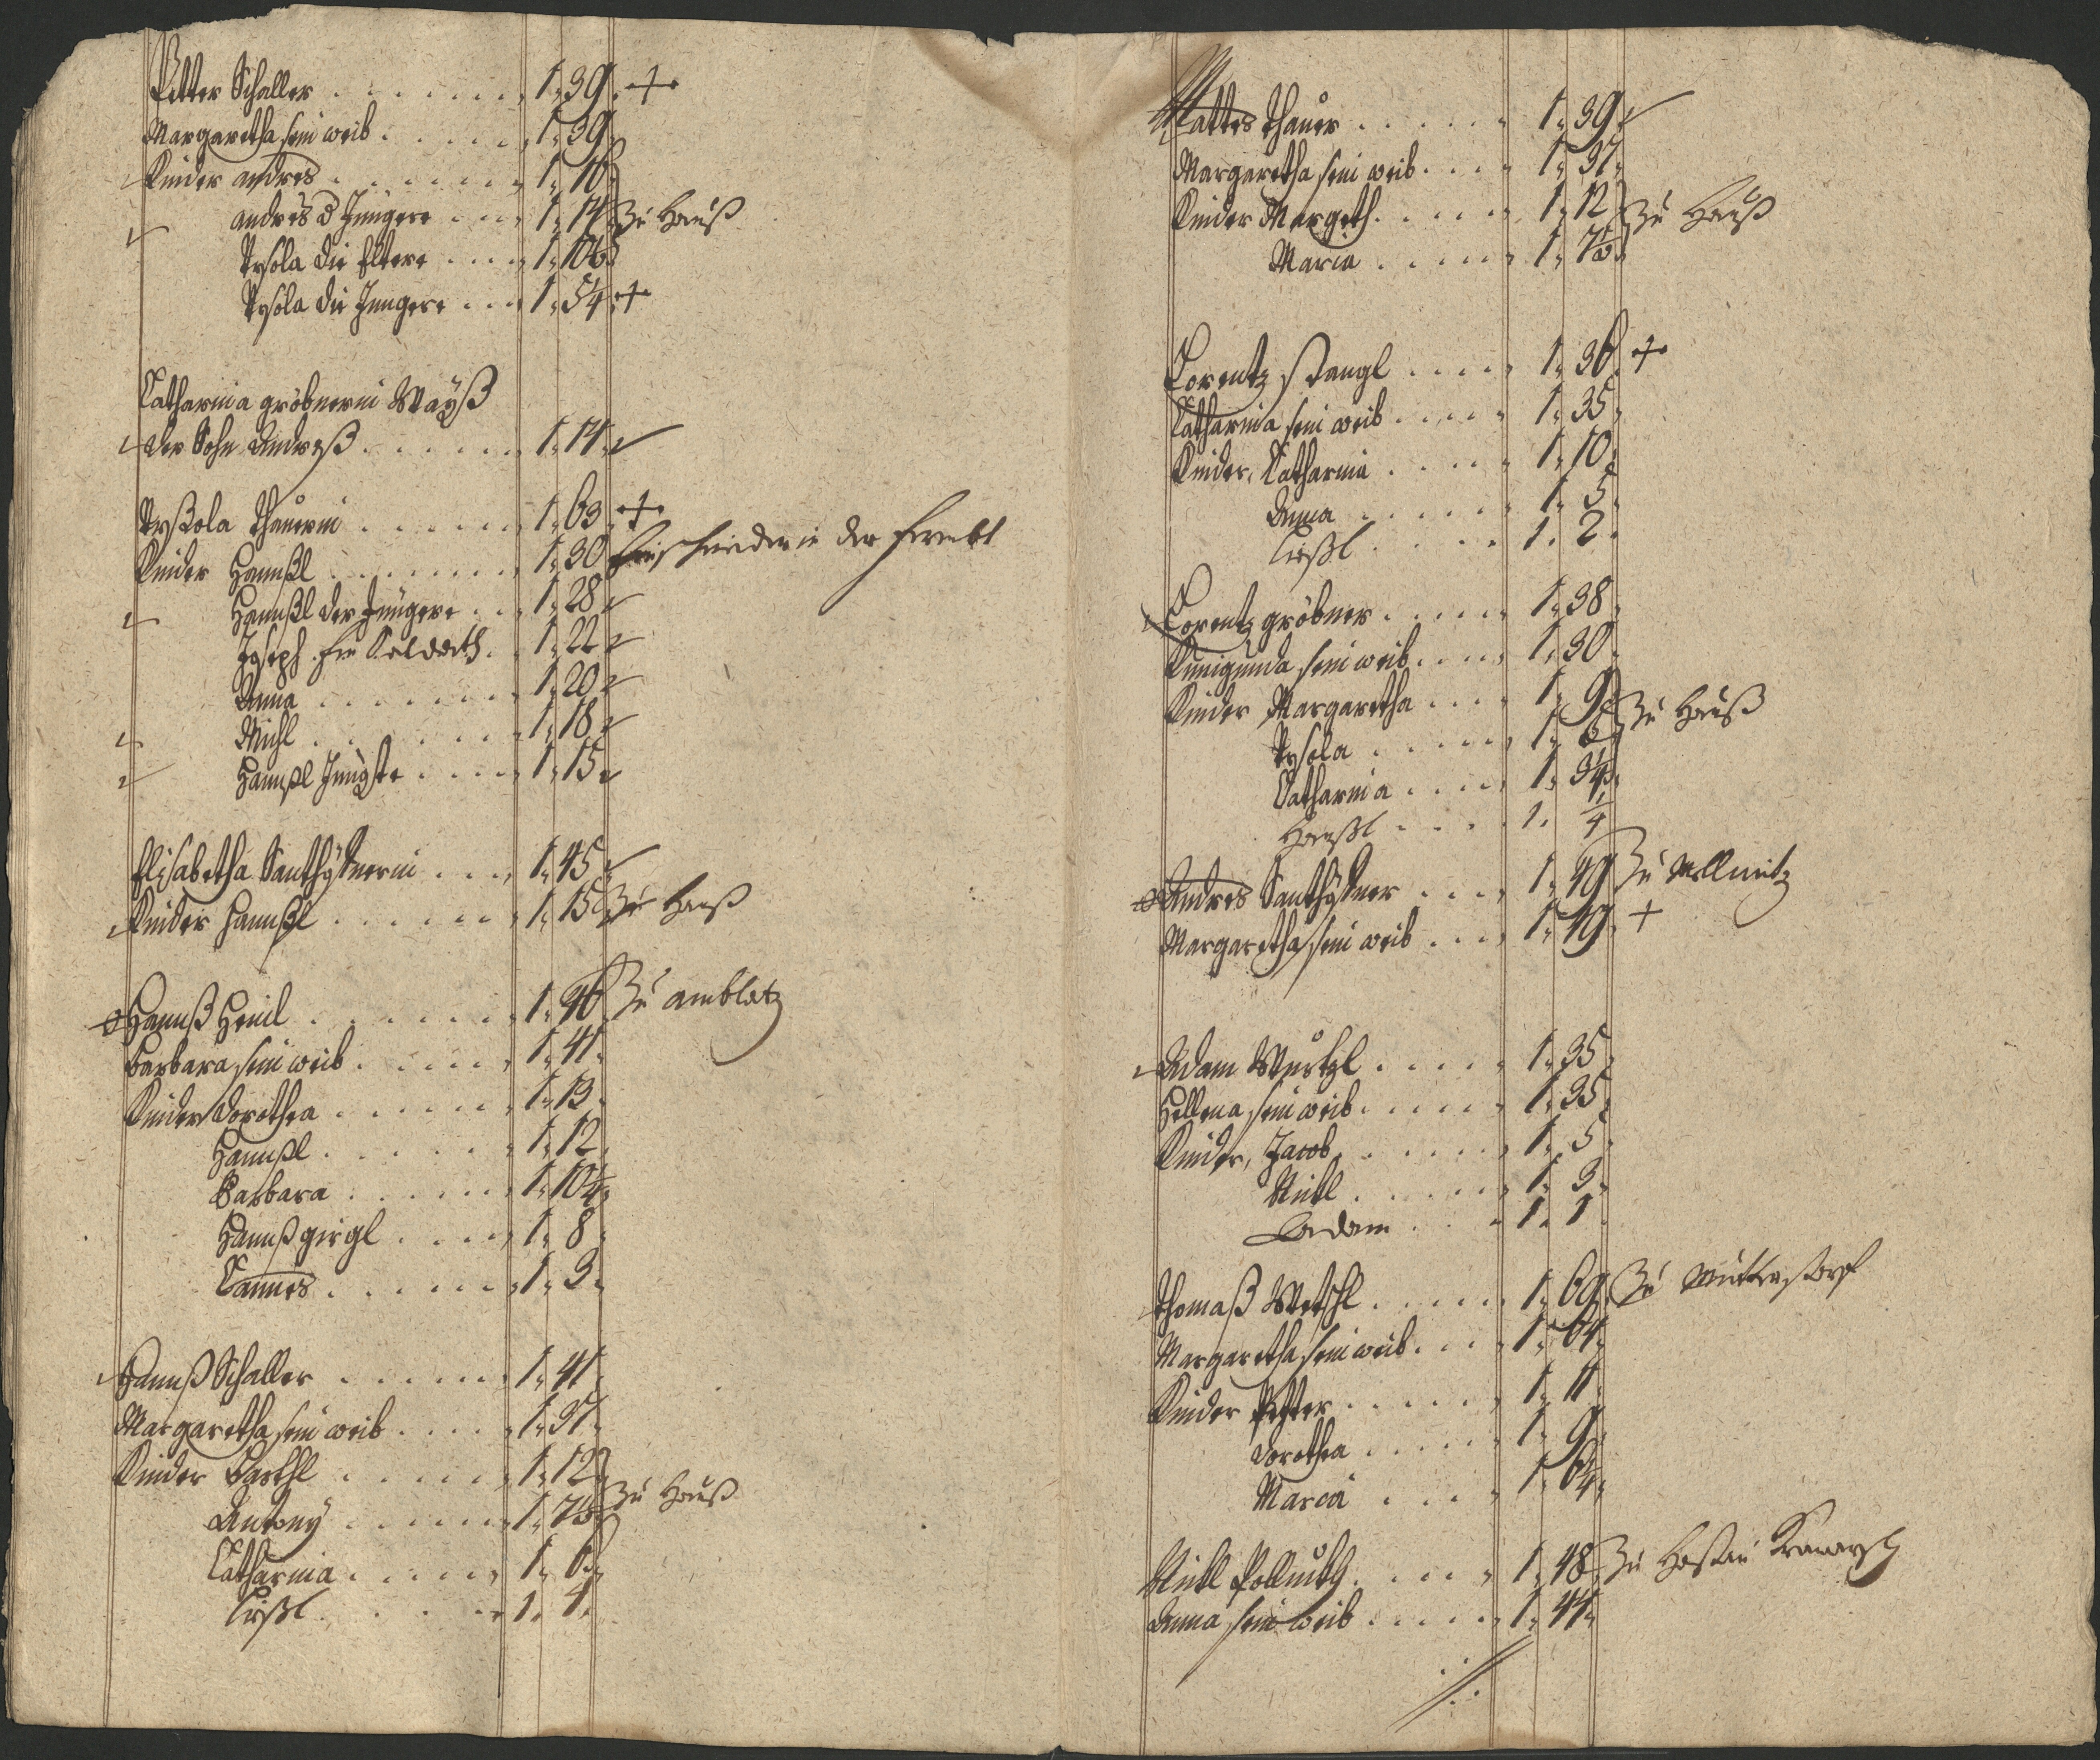 Petter Schaller . . . . . . . 1. 39. +
Margaretha sein weib . . . . . 1. 39.
Kinder andres . . . . . . 1. 16.
andres d Jüngere . . . 1. 14. Zu Hauß
Rosola die Eltere . . . . 1. 10
Rosola die Jüngere . . . 1. 5¼. +
Catharina gröbnerin Wayß
der Sohn Andreß . . . . . . 1. 14.
Roßola thauerin . . . . . . 1. 63. +
Kinder Hannßl . . . . . . . 1. 30 der frembt
Hannßl der Jüngere . . . 1. 28
Joseph. Ein Soldath. . 1. 22
Anna . . . . . . . 1. 20
Michl . . . . . . . 1. 18
Hannßl Jüngste . . . . 1. 15
Elisabetha Santhÿstnerin . . . . 1. 45
Kinder Hannßl . . . . . . 1. 15 Zu Hauß
Hannß Heinl . . . . . . . 1. 46 Zu amblatz
Barbara sein weib . . . . . 1. 41.
Kinder Dorothea . . . . . . 1. 13.
Hannßl . . . . . . 1. 12.
Barbara . . . . . . 1. 10¼
Hannß girgl . . . . . 1. 8.
Hannes . . . . . . 1. 3.
Hannß Schaller . . . . . . 1. 41.
Margaretha sein weib . . . . 1. 37.
Kinder Barthl . . . . . . 1. 12
Antony . . . . . . 1. 7½ Zu Hauß
Catharina . . . . . 1. 6.
Lißl . . . . . 1. 4.
Mattes thauer . . . . . . 1. 39.
Margaretha sein weib . . . . 1. 37.
Kinder Margeth . . . . . 1. 12 Zu Hauß
Maria . . . . . 1. 7½
Lorentz Stangl . . . . . 1. 36. +
Catharina sein weib . . . . . 1. 35.
Kinder, Catharina . . . . . 1. 10.
Anna . . . . . . 1. 5.
Lißl . . . . . 1. 2.
Lorentz gröbner . . . . . 1. 38.
Kunigunda sein weib . . . . 1. 30.
Kinder Margaretha . . . . 1. 9. Zu Hauß
Rosola . . . . . 1. 6
Catharina . . . . 1. 3¼.
Hanßl . . . . . 1. ¼
Andres Santhÿstner . . . . 1. 49 Zu Mellnitz
Margaretha sein weib . . . . 1. 49. +
Adam Wurtzl . . . . . 1. 35.
Hellena sein weib . . . . . 1. 35.
Kinder, Jacob . . . . . . 1. 5.
Nickl . . . . . . 1. 3.
Adam . . . . 1. 1.
thomaß Wetzl . . . . . . 1. 69. Zu Muttersdorf
Margaretha sein weib . . . . 1. 64.
Kinder Petter . . . . . . 1. 11.
Dorothea . . . . . 1. 9.
Maria . . . . . 1. 6¼.
Nickl Pollnith . . . . . 1. 48. Zu Hostau
Anna sein weib . . . . . 1. 44.